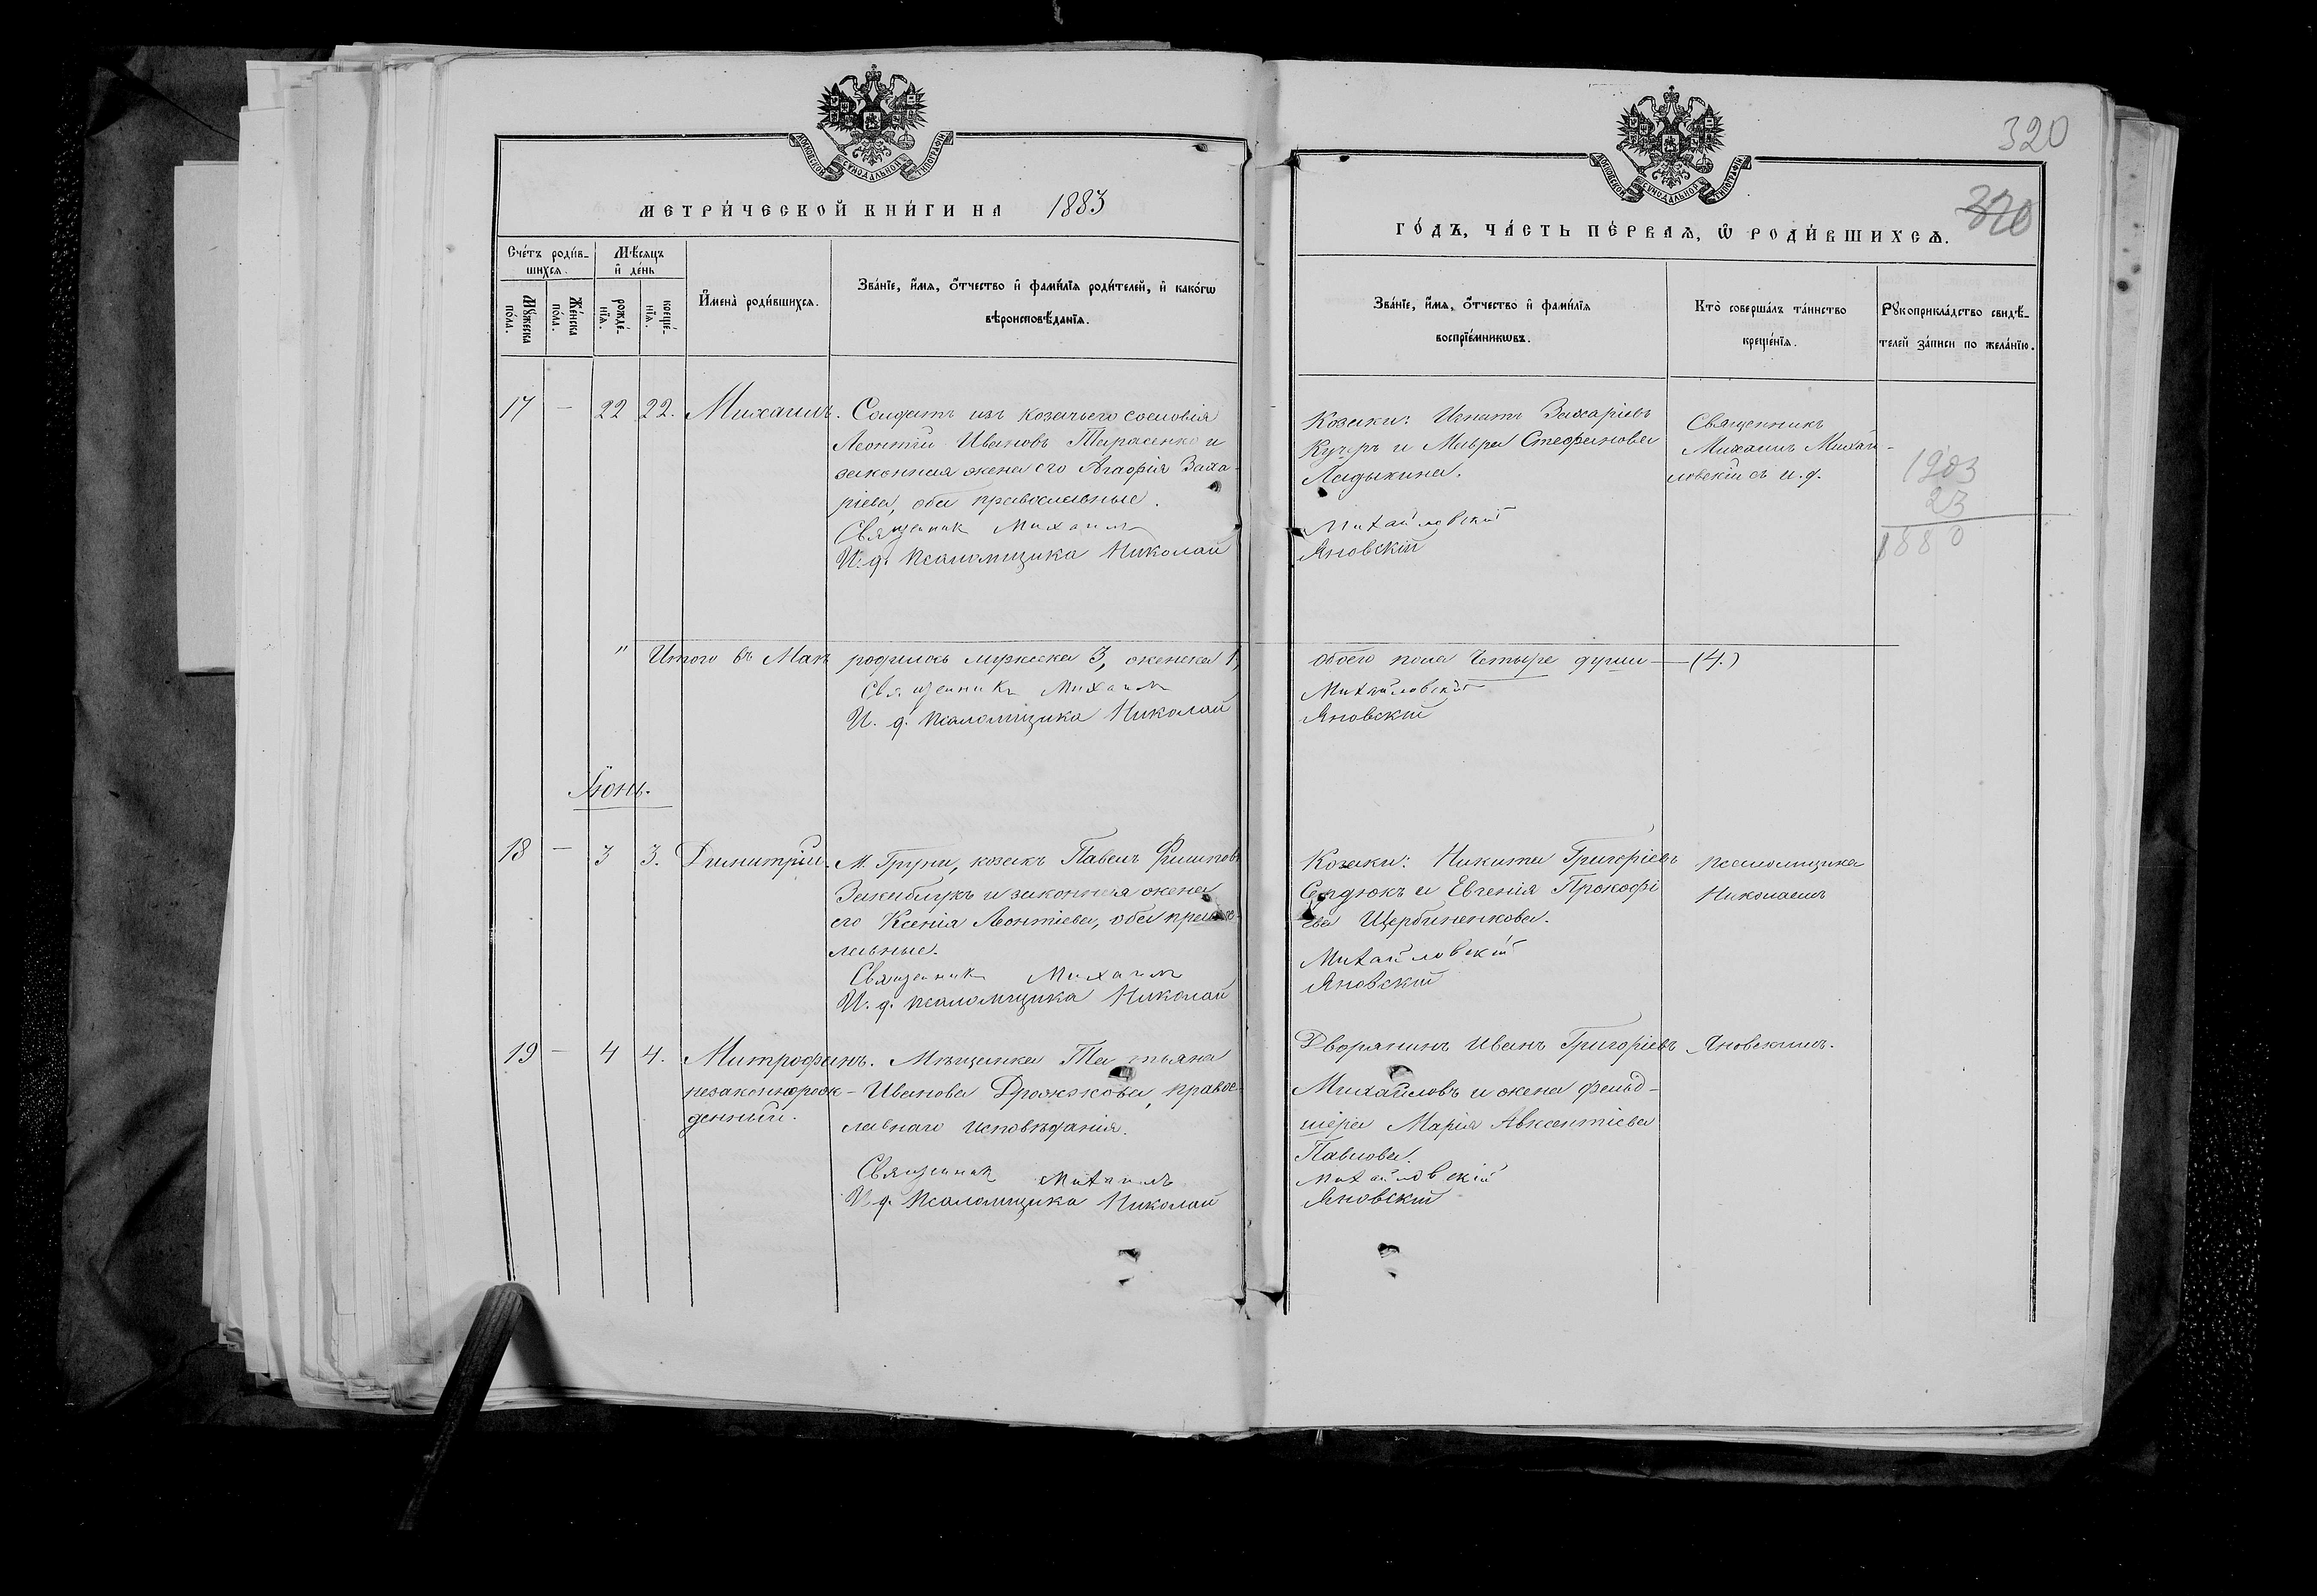 МОСКОВСКОЙ СѴНОДАЛЬНОЙ ТИПОГРАФІИ
МЕТРИ́ЧЕСКОЙ КНИ́ГИ НА 1883
Сче́тъ роди́в-
шихся.
Мѣ́сяцъ
и҆ де́нь
Мꙋ́жеска
по́ла.
Же́нска
по́ла.
рожде́-
нїя.
креще́-
нїя.
И҆мена̀ роди́вшихся.
Зва́нїе, и҆́мя, ѻ҆́тчество и҆ фами́лїя роди́телей, и҆ како́гѡ
вѣроисповѣ́данїя.
17 — 22 22. Михаилъ.
Солдатъ изъ козачьего сословія
Леонтій Ивановъ Тарасенко и
законная жена его Агафія Заха-
ріева, оба православные.
Священник Михаилъ
И. д. Псаломщика Николай
" Итого въ Маѣ родилось мужеска 3, женска 1,
Священникъ Михаилъ
И. д. Псаломщика Николай
Іюнь.
18 — 3 3. Димитрій.
М. Груни, козакъ Павелъ
и законная жена
его Ксенія Леонтіева, оба правос-
лавные.
Священникъ Михаилъ
И. д. Псаломщика Николай
19 — 4 4. Митрофанъ.
незаконнорож-
денный.
Мѣщанка Татьяна
Иванова Дрожжова, правос-
лавнаго исповѣданія.
Священник Михаилъ
И. д. Псаломщика Николай
320
320
МОСКОВСКОЙ СѴНОДАЛЬНОЙ ТИПОГРАФІИ
ГО́ДЪ, ЧА́СТЬ ПЕ́РВАѦ, Ѡ҆ РОДИ́ВШИХСѦ.
Зва́нїе, и҆́мя, ѻ҆́тчество и҆ фами́лїя
воспрїе́мникѡвъ.
Кто̀ соверша́лъ та́инство
креще́нїя.
Рꙋкоприкла́дство свидѣ́-
телей за́писи по жела́нїю.
Козаки: Игнатъ Захаріевъ
Кучеръ и Мавра Стефанова
Ладыкина.
Михайловскій
Яновскій
Священникъ
Михаилъ Михай-
ловскій съ и. д.
1903
23
1880
обоего пола Четыре души — (4.)
Михайловскій
Яновскій
Козаки: Никита Григоріевъ
Сердюкъ и Евгенія Прокофі
ева Щербиненкова.
Михайловскій
Яновскій
псаломщика
Николаемъ
Дворянинъ Иванъ Григоріевъ
Михайловъ и жена фельд-
шера Марія Авксентіева
Павлова.
Михайловскій
Яновскій
Яновскимъ.